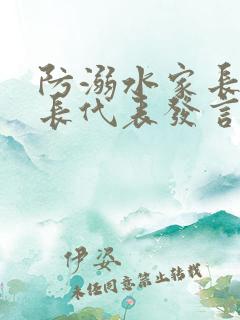 防溺水家長
長代表發言
伊姿
未经同意禁止转载